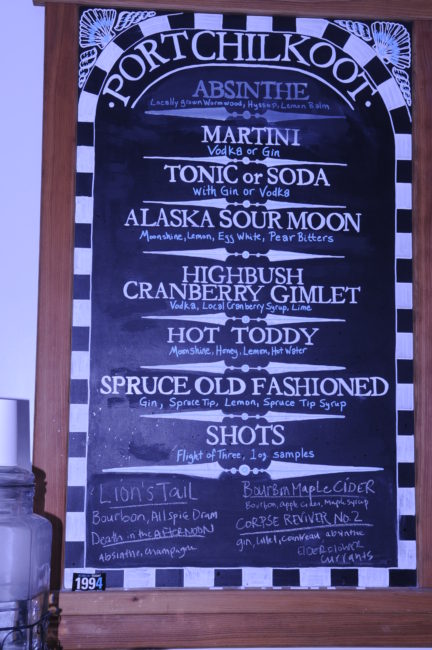 PORTCHILKOOT
ABSINTHE
Locally grown Wormwood, Hyssup, Lemon Balm
MARTINI
Vodka or Gin
TONIC or SODA
With Gin or Vodka
ALASKA SOUR MOON
Moonshine, Lemon, Egg White, Pear Bitters
HIGHBUSH
CRANBERRY GIMLET
Vodka, Local Cranberry Syrup, Lime
HOT TODDY
Moonshine, Honey, Lemon, Hot Water
SPRUCE OLD FASHIONED
Gin, Spruce Tip, Lemon, Spruce Tip Syrup
SHOTS
Flight of Three, 1 oz samples
Lion's Tail
Bourbon, Allspice Dram
Death in the AFTERNOON
absinthe, champagne
Bourbon Maple CIDER
Bourbon, apple Cider, Maple syrup
CORPSE REVIVER No. 2
gin, Lillet, Cointreau absinthe
ELDERFLOWER
CURRANTS
1994